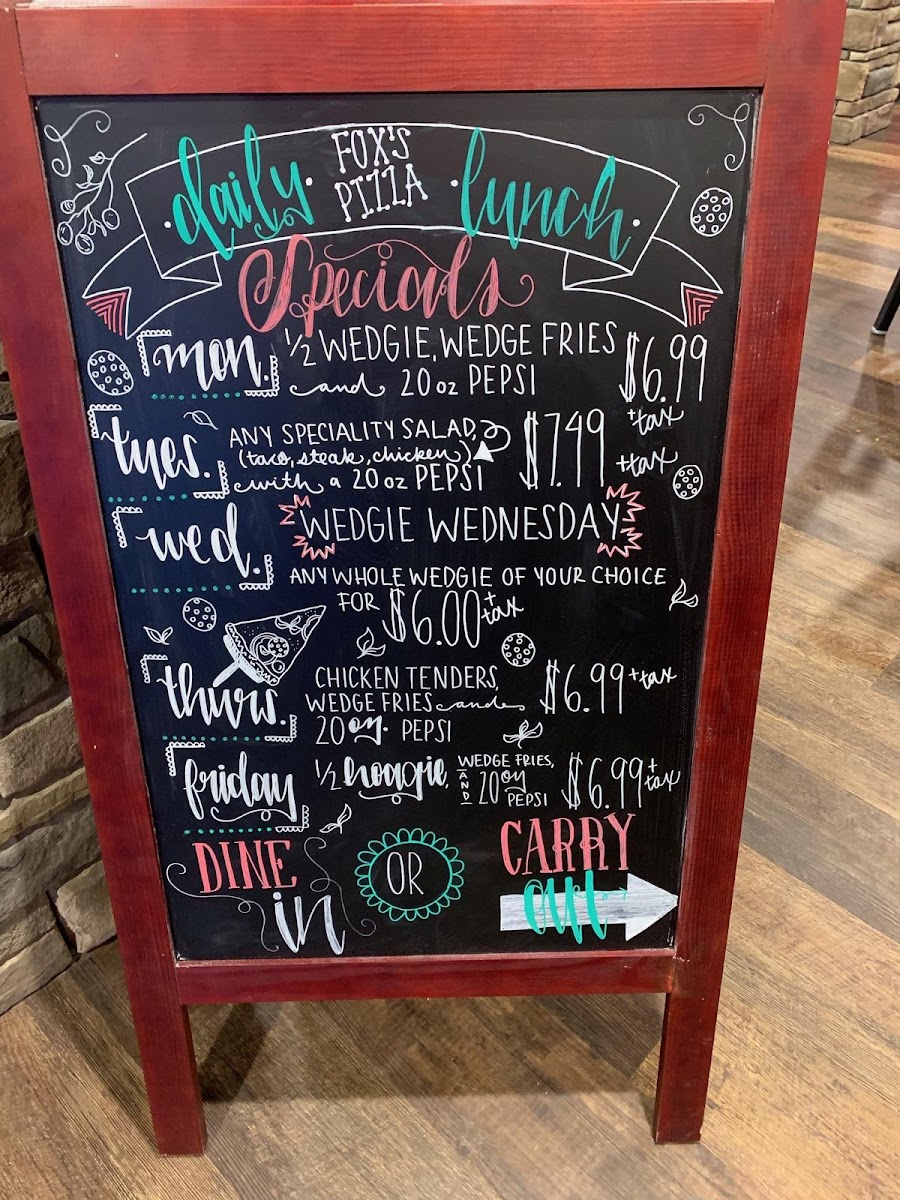 daily · FOX'S PIZZA · lunch
Specials
mon. 1/2 WEDGIE, WEDGE FRIES $6.99
and 20oz PEPSI + tax
tues. ANY SPECIALITY SALAD, $7.49
(taco, steak, chicken) + tax
with a 20oz PEPSI
wed. WEDGIE WEDNESDAY
ANY WHOLE WEDGIE OF YOUR CHOICE
FOR $6.00 + tax
thurs. CHICKEN TENDERS, $6.99 + tax
WEDGE FRIES and
20oz. PEPSI
friday 1/2 hoagie, WEDGE FRIES, $6.99 + tax
AND 20oz PEPSI
DINE in OR CARRY out